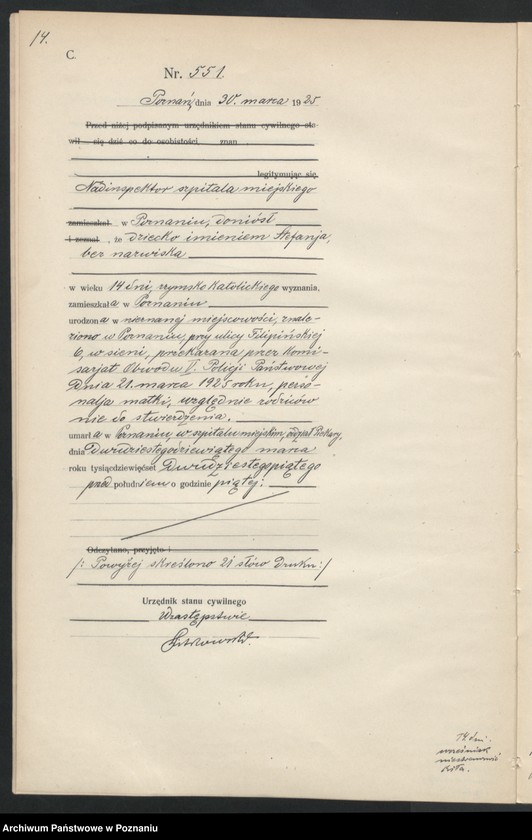 14.
C.
Nr. 551.
Poznań, dnia 30. marca 1925
Przed niżej podpisanym urzędnikiem stanu cywilnego sta-
wił się dziś co do osobistości znan
legitymując się
Nadinspektor szpitala miejskiego
zamieszkał w Poznaniu, doniósł
i zeznał, że dziecko imieniem Stefanja,
bez nazwiska
w wieku 14 dni, rzymsko katolickiego wyznania,
zamieszkała w Poznaniu
urodzona w nieznanej miejscowości, znale-
ziono w Poznaniu, przy ulicy Filipińskiej
6, w sieni, przekazana przez Komi-
sarjat Obwodu V. Policji Państwowej
dnia 21. marca 1925 roku, perso-
nalja matki, względnie rodziców
nie do stwierdzenia.
umarła w Poznaniu w szpitalu miejskim, oddział Piekary,
dnia dwudziestegodziewiątego marca
roku tysiącdziewięćset dwudziestegopiątego
przed południem o godzinie piątej:
Odczytano, przyjęto i
/: Powyżej skreślono 21 słów druku:/
Urzędnik stanu cywilnego
W zastępstwie
14 dni.
wrodzona
Archiwum Państwowe w Poznaniu